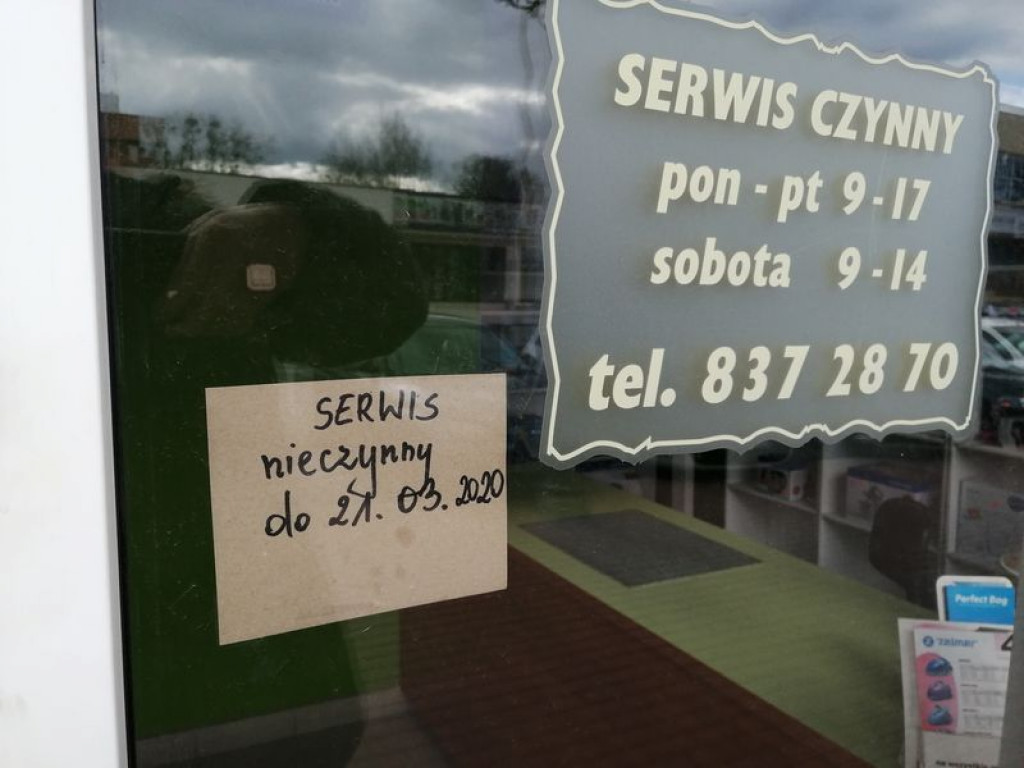 SERWIS CZYNNY
pon - pt 9 - 17
sobota 9 - 14
tel. 837 28 70
SERWIS
nieczynny
do 21. 03. 2020
Perfect Bag
zelmer